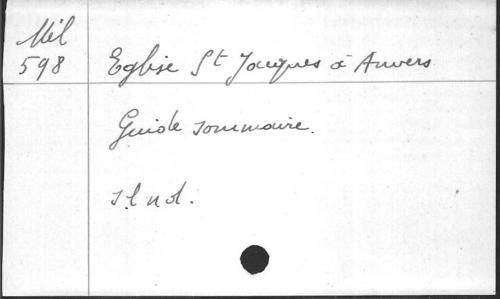 Mél
598
Eglise St Jacques à Anvers
Guide sommaire.
s.l n d.